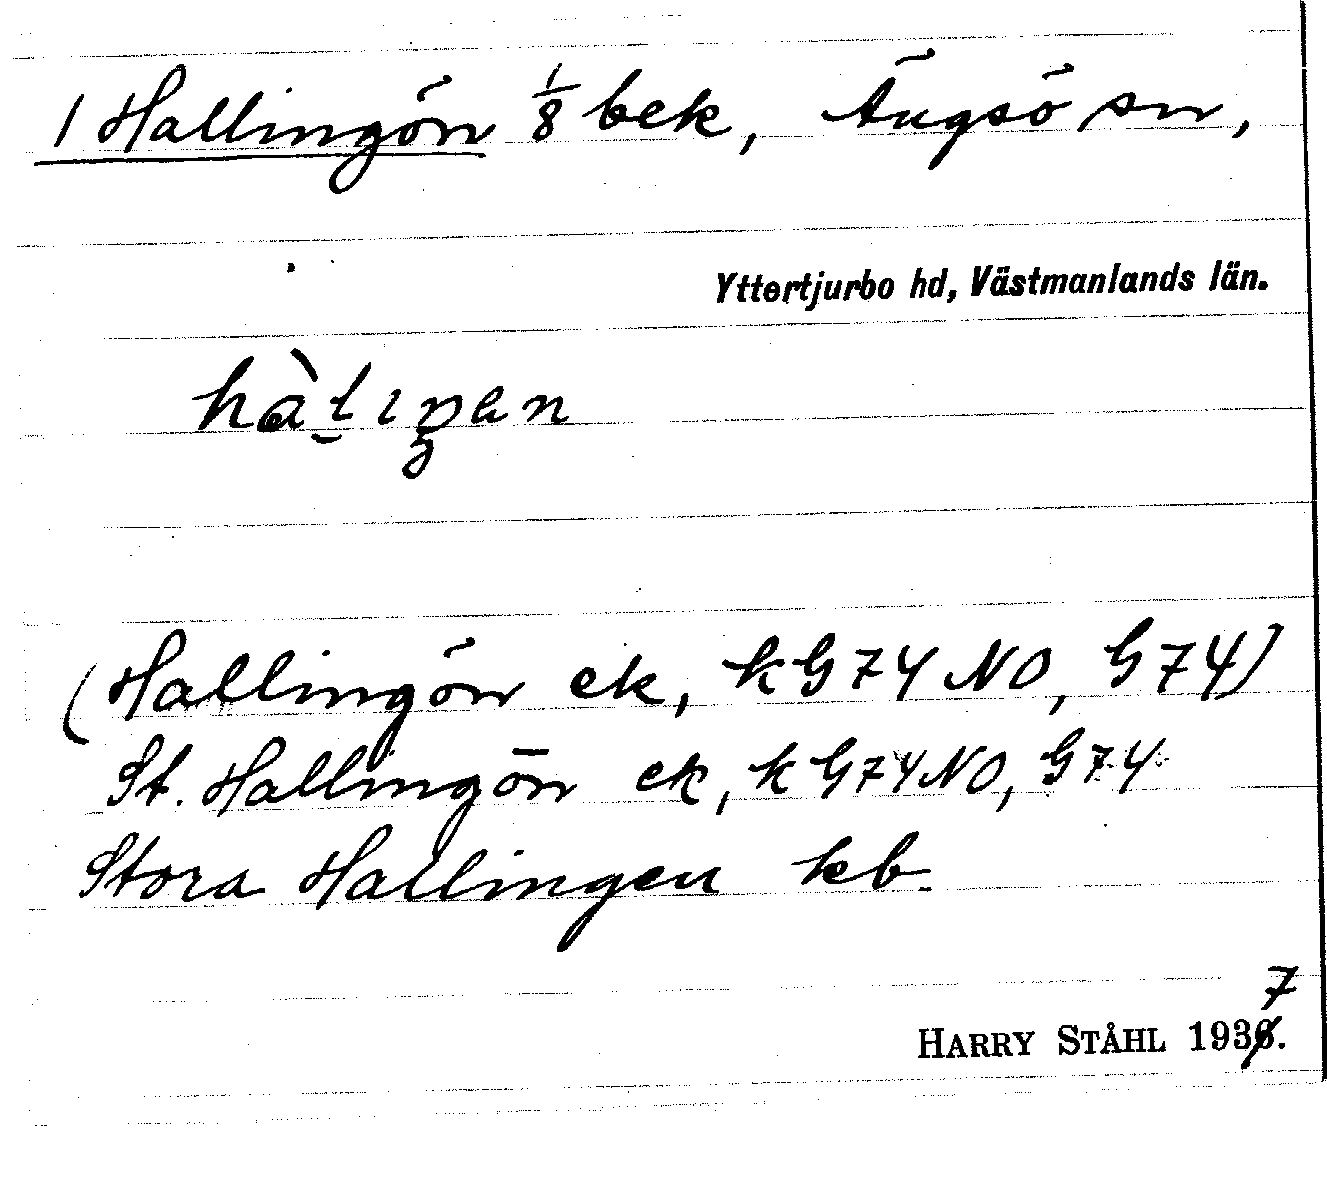 1 Hallingön 1/8 bek, Ängsö sn,
Yttertjurbo hd, Västmanlands län.
(Hallingön ek, kG74NO, G74)
St. Hallingön ek, kG74NO, G74
Stora Hallingen hb.
7
HARRY STÅHL 1936.